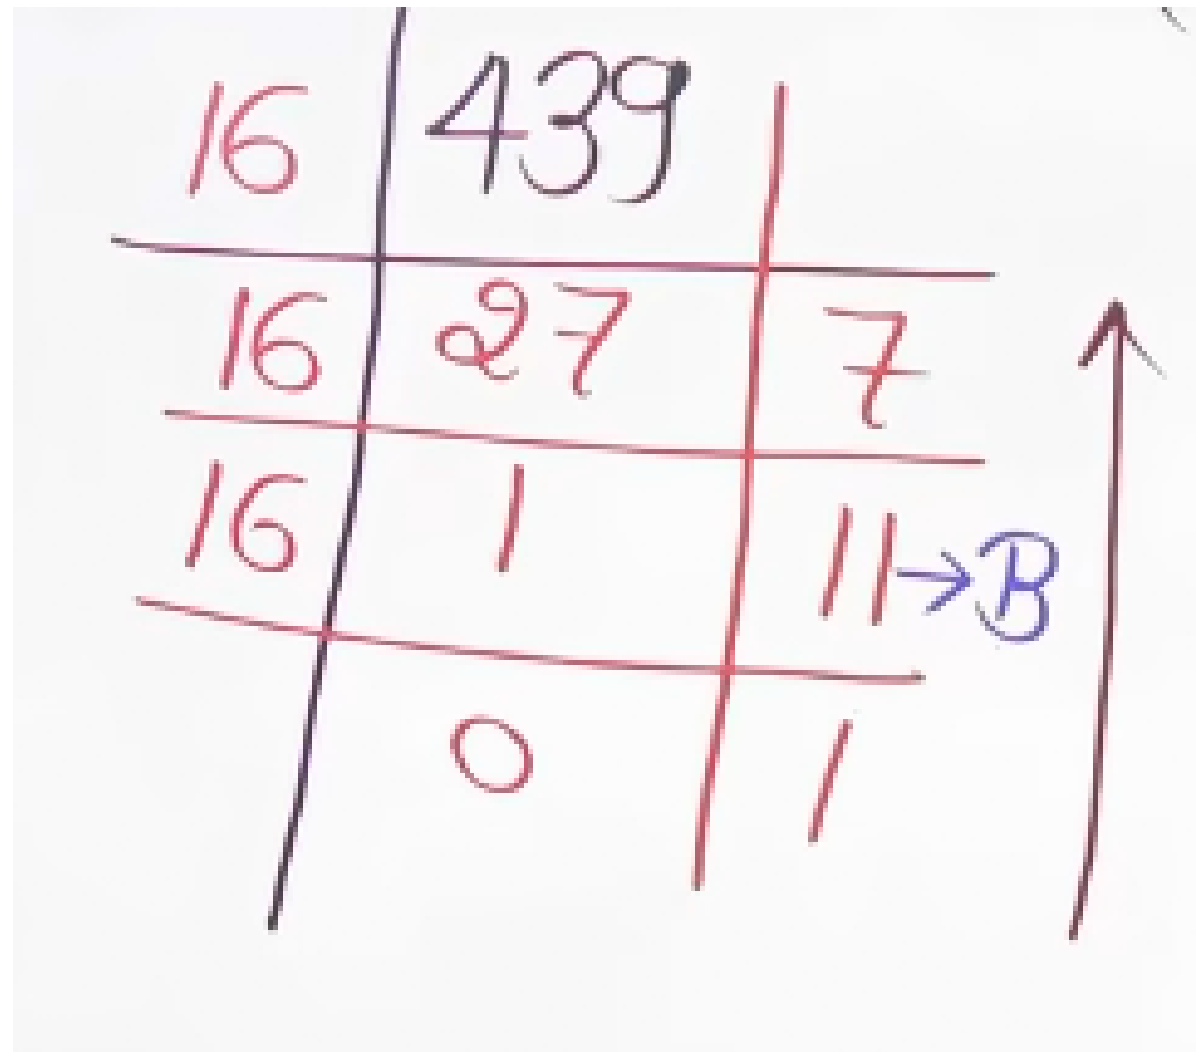 16 439
16 27 7
16 1 11 → B
0 1